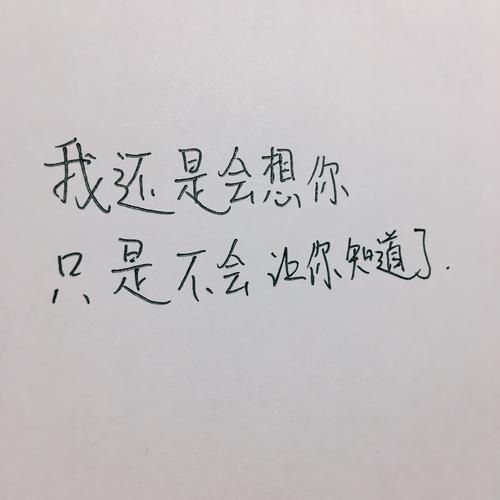 我还是会想你
只是不会让你知道了.